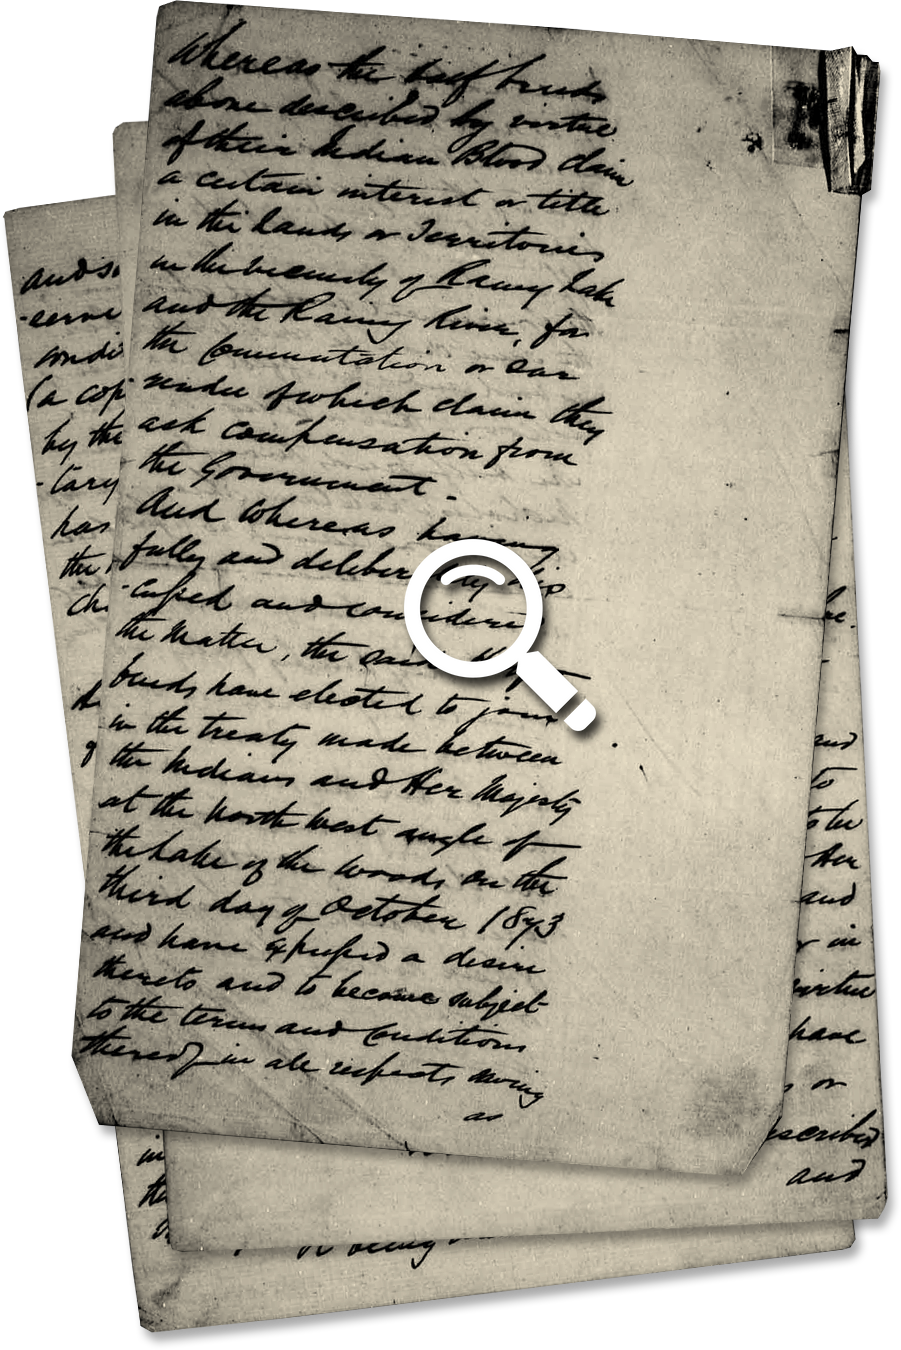 Whereas the half breeds
above described by virtue
of their Indian Blood claim
a certain interest or title
in the lands or Territories
in the vicinity of Rainy Lake
and the Rainy River, for
the Commutation or sur
render of which claim they
ask compensation from
the Government.
And Whereas having
fully and deliberately dis
cussed and considered
the Matter, the said Half
breeds have elected to join
in the treaty made between
the Indians and Her Majesty
at the North West angle of
the Lake of the Woods on the
third day of October 1873
and have expressed a desire
thereto and to become subject
to the terms and Conditions
thereof in all respects saving
as
and
-serve
condi
(a cop
by the
-tary
has
the
ch
in
the
being
be.
and
to
Her
and
or in
virtue
have
s or
scribed
and